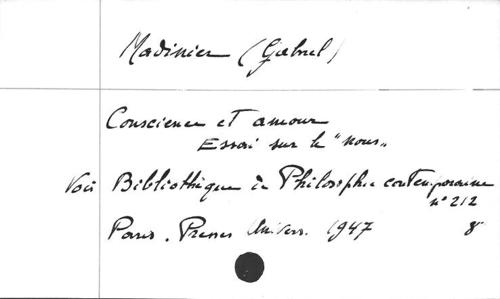 Madinier (Gabriel)
Conscience et amour
Essai sur le "nous"
Voir Bibliothèque de Philosophie contemporaine
n° 212
Paris. Presses Univers. 1947 8°